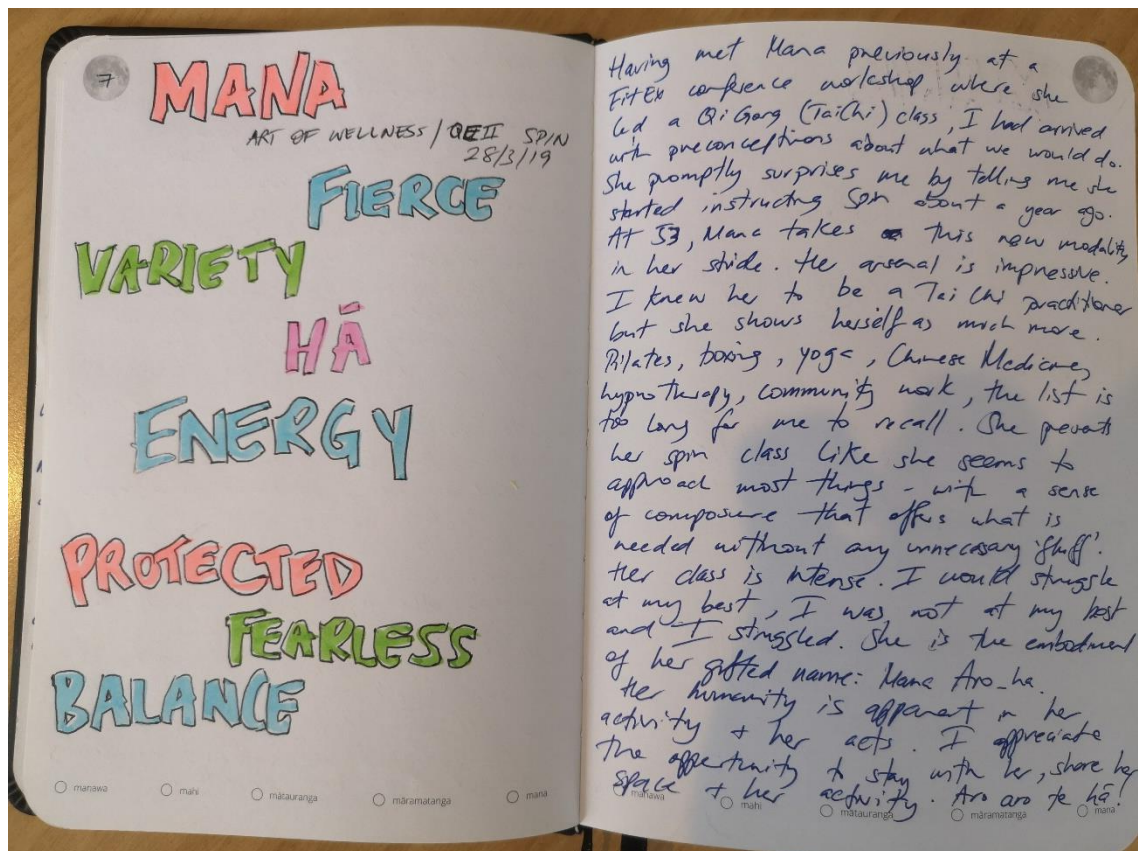 7
MANA
ART OF WELLNESS / QEII SPIN
28/3/19
FIERCE
VARIETY
HÁ
ENERGY
PROTECTED
FEARLESS
BALANCE
manawa
mahi
mātauranga
māramatanga
mana
Having met Mana previously at a
FitEx conference workshop where she
led a Qi Gong (TaiChi) class, I had arrived
with preconceptions about what we would do.
She promptly surprises me by telling me she
started instructing Spin about a year ago.
At 53, Mana takes this new modality
in her stride. Her arsenal is impressive.
I knew her to be a Tai Chi practitioner
but she shows herself as much more.
Pilates, boxing, yoga, Chinese Medicine,
hypnotherapy, community work, the list is
too long for me to recall. She presents
her spin class like she seems to
approach most things - with a sense
of composure that offers what is
needed without any unnecessary 'fluff'.
Her class is intense. I would struggle
at my best, I was not at my best
and I struggled. She is the embodiment
of her gifted name: Mana Aro_ha.
Her humanity is apparent in her
activity + her acts. I appreciate
the opportunity to stay with her, share her
space + her activity. Aro aro te hā!
manawa
mahi
mātauranga
māramatanga
mana